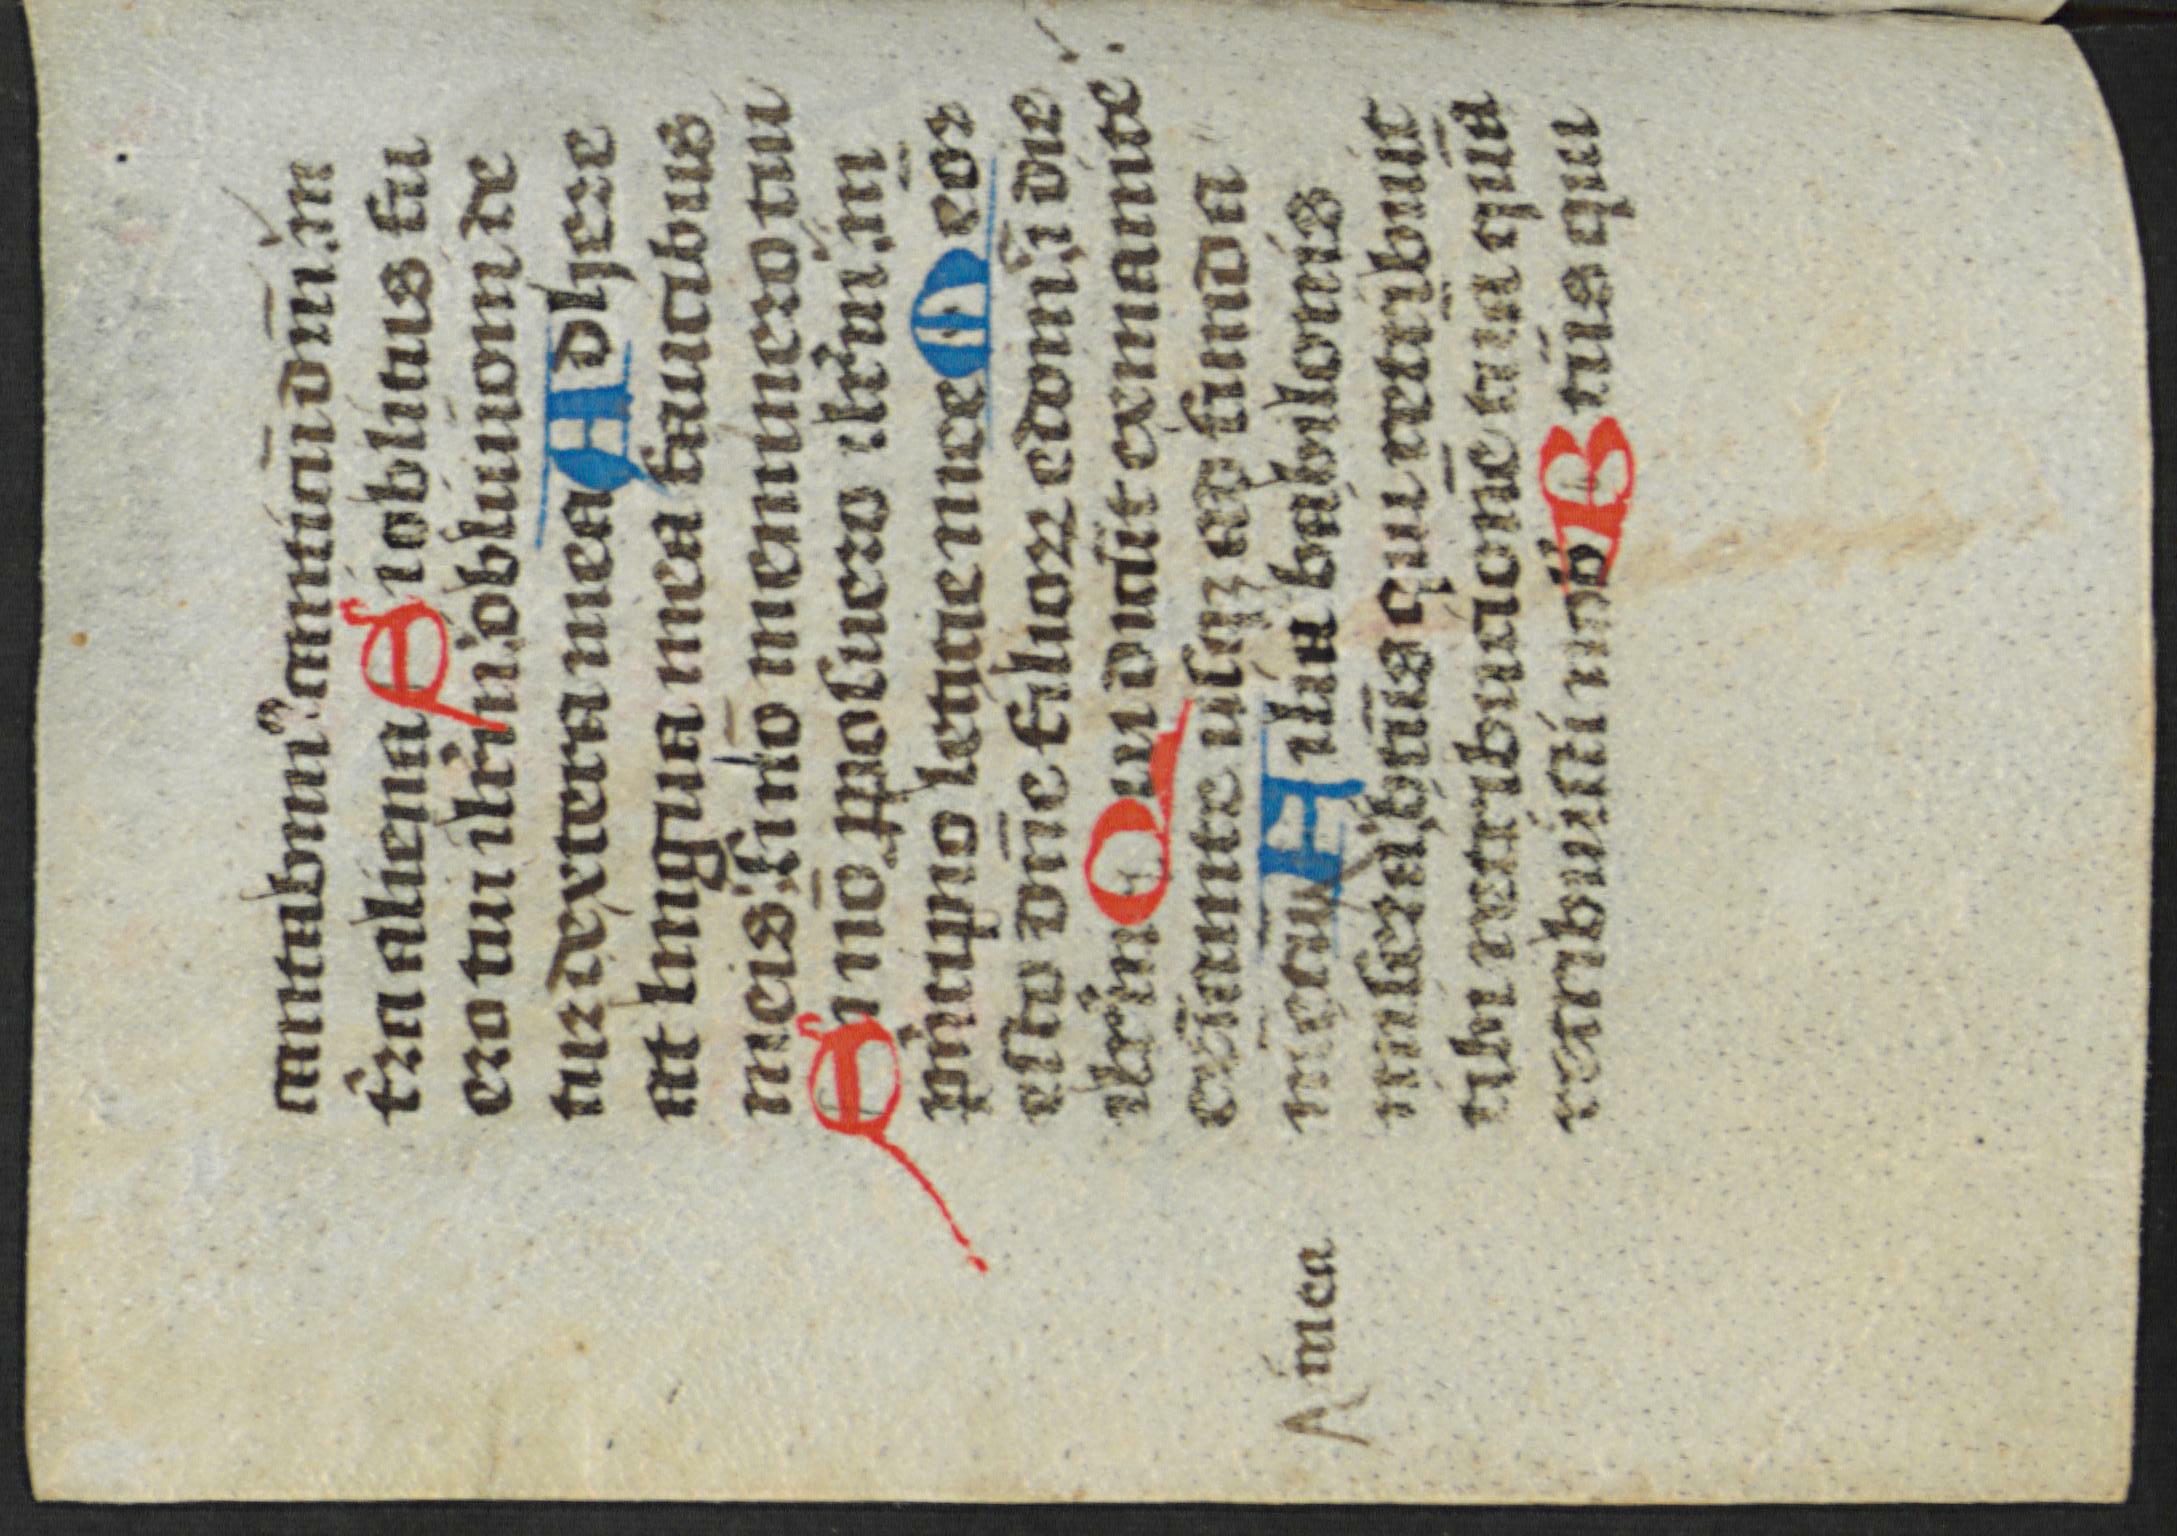 cantabim⁹ canticū dn̄i in
tr̄a aliena Si oblitus fu
ero tui ihrl̄m oblivioni de
tur dextera mea Adhere
at lingua mea faucibus
meis si nō meminero tui
Si nō p̱posuero ihrl̄m in
principio leticie mee Memor
esto dn̄e filioꝝ edom in die
ihrl̄m Qui dicūt exinanite
exīanite usqꝫ ad funda
mētū in ea Filia babilonis
misera bt̄us qui retribuet
tibi retributionē tuā quā
retribuisti nob̄ Bt̄us qui
mea